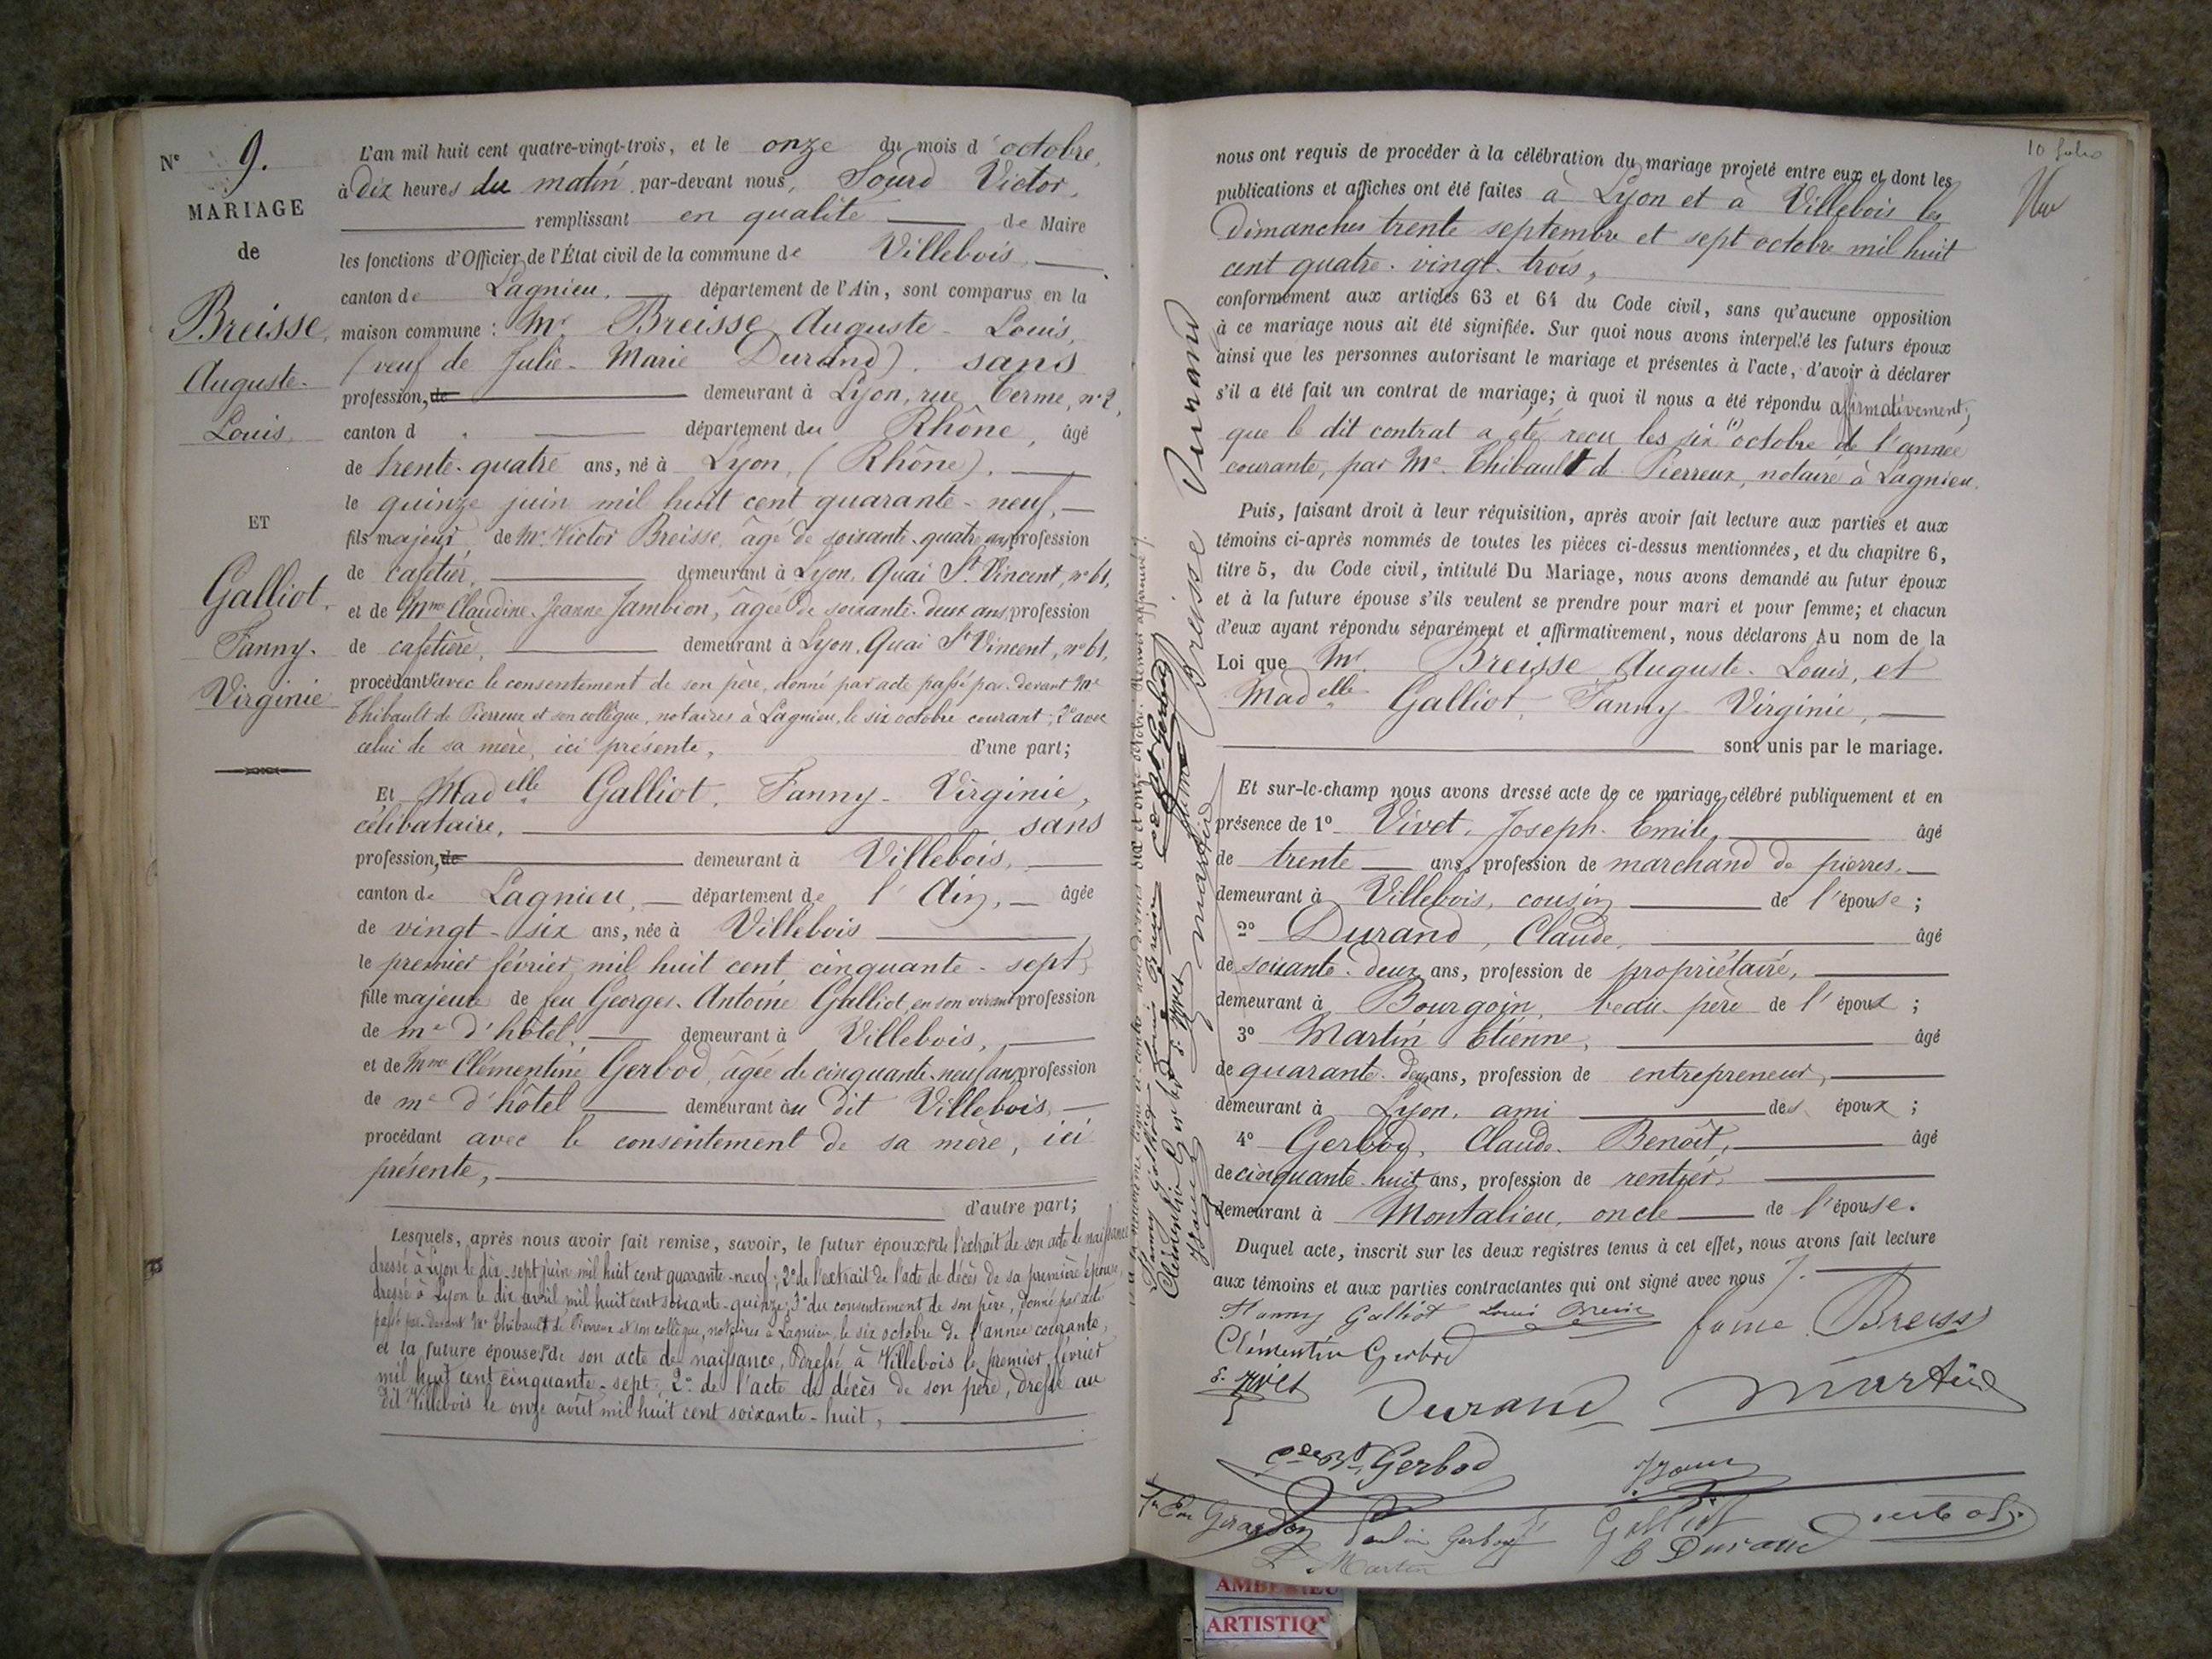 N° 9.
MARIAGE
de
Breisse,
Auguste-
Louis.
ET
Galliot.
Fanny-
Virginie
L'an mil huit cent quatre-vingt-trois, et le onze du mois d'octobre,
à dix heures du matin par-devant nous, Sourd Victor,
remplissant en qualité de Maire
les fonctions d'Officier de l'État civil de la commune de Villebois,
canton de Lagnieu, département de l'Ain, sont comparus en la
maison commune : Mr Breisse Auguste-Louis,
(veuf de Julie-Marie Durand). sans
profession, de demeurant à Lyon, rue Terme, n° 2,
canton d département du Rhône, âgé
de trente-quatre ans, né à Lyon, (Rhône).
le quinze juin mil huit cent quarante-neuf,
fils majeur de Mr Victor Breisse, âgé de soixante-quatre ans profession
de cafetier, demeurant à Lyon, Quai St Vincent, n° 61,
et de Mme Claudine-Jeanne Jambion, âgée de soixante-deux ans, profession
de cafetière, demeurant à Lyon, Quai St Vincent, n° 61,
procédant 1° avec le consentement de son père, donné par acte passé par-devant Me
Thibault de Pierreux et son collègue, notaires à Lagnieu, le six octobre courant; 2° avec
celui de sa mère, ici présente, d'une part;
Et Madelle Galliot, Fanny-Virginie,
célibataire, sans
profession, de demeurant à Villebois,
canton de Lagnieu, département de l'Ain, âgée
de vingt-six ans, née à Villebois
le premier février mil huit cent cinquante-sept,
fille majeure de feu Georges-Antoine Galliot, en son vivant profession
de me d'hôtel, demeurant à Villebois,
et de Mme Clémentine Gerbod, âgée de cinquante-neuf ans profession
de me d'hôtel demeurant au dit Villebois,
procédant avec le consentement de sa mère, ici
présente,
d'autre part;
Lesquels, après nous avoir fait remise, savoir, le futur époux: 1° de l'extrait de son acte de naissance
dressé à Lyon le dix-sept juin mil huit cent quarante-neuf; 2° de l'extrait de l'acte de décès de sa première épouse,
dressé à Lyon le dix avril mil huit cent soixante-quinze; 3° du consentement de son père, donné par acte
passé par-devant Me Thibault de Pierreux et son collègue, notaires à Lagnieu, le six octobre de l'année courante,
et la future épouse 1° de son acte de naissance, dressé à Villebois le premier février
mil huit cent cinquante-sept; 2° de l'acte de décès de son père, dressé au
dit Villebois le onze août mil huit cent soixante-huit,
10 folio
nous ont requis de procéder à la célébration du mariage projeté entre eux et dont les
publications et affiches ont été faites à Lyon et à Villebois les
dimanches trente septembre et sept octobre mil huit
cent quatre-vingt-trois,
conformément aux articles 63 et 64 du Code civil, sans qu'aucune opposition
à ce mariage nous ait été signifiée. Sur quoi nous avons interpellé les futurs époux
ainsi que les personnes autorisant le mariage et présentes à l'acte, d'avoir à déclarer
s'il a été fait un contrat de mariage; à quoi il nous a été répondu affirmativement;
que le dit contrat a été reçu les six (1) octobre de l'année
courante, par Me Thibault de Pierreux, notaire à Lagnieu.
Puis, faisant droit à leur réquisition, après avoir fait lecture aux parties et aux
témoins ci-après nommés de toutes les pièces ci-dessus mentionnées, et du chapitre 6,
titre 5, du Code civil, intitulé Du Mariage, nous avons demandé au futur époux
et à la future épouse s'ils veulent se prendre pour mari et pour femme; et chacun
d'eux ayant répondu séparément et affirmativement, nous déclarons Au nom de la
Loi que Mr. Breisse, Auguste-Louis, et
Madelle Galliot, Fanny-Virginie,
sont unis par le mariage.
Et sur-le-champ nous avons dressé acte de ce mariage célébré publiquement et en
présence de 1° Vivet, Joseph-Emile, âgé
de trente ans, profession de marchand de pierres,
demeurant à Villebois, cousin de l'épouse;
2° Durand, Claude, âgé
de soixante-deux ans, profession de propriétaire,
demeurant à Bourgoin, beau-père de l'époux;
3° Martin Etienne, âgé
de quarante-deux ans, profession de entrepreneur,
demeurant à Lyon, ami des époux;
4° Gerbod, Claude-Benoît, âgé
de cinquante-huit ans, profession de rentier,
demeurant à Montalieu, oncle de l'épouse.
Duquel acte, inscrit sur les deux registres tenus à cet effet, nous avons fait lecture
aux témoins et aux parties contractantes qui ont signé avec nous
Fanny Galliot Louis Breisse fame Breiss
Clémentine Gerbod
Vivet Durand Martin
Gerbod
Paulin Gerbod Galliot Gerbod
Martin C Durand
Fanny Galliot Louis Breisse
Clémentine Gerbod Vivet
Martin
fame Breisse Durand
AMBERIEU
ARTISTIQ